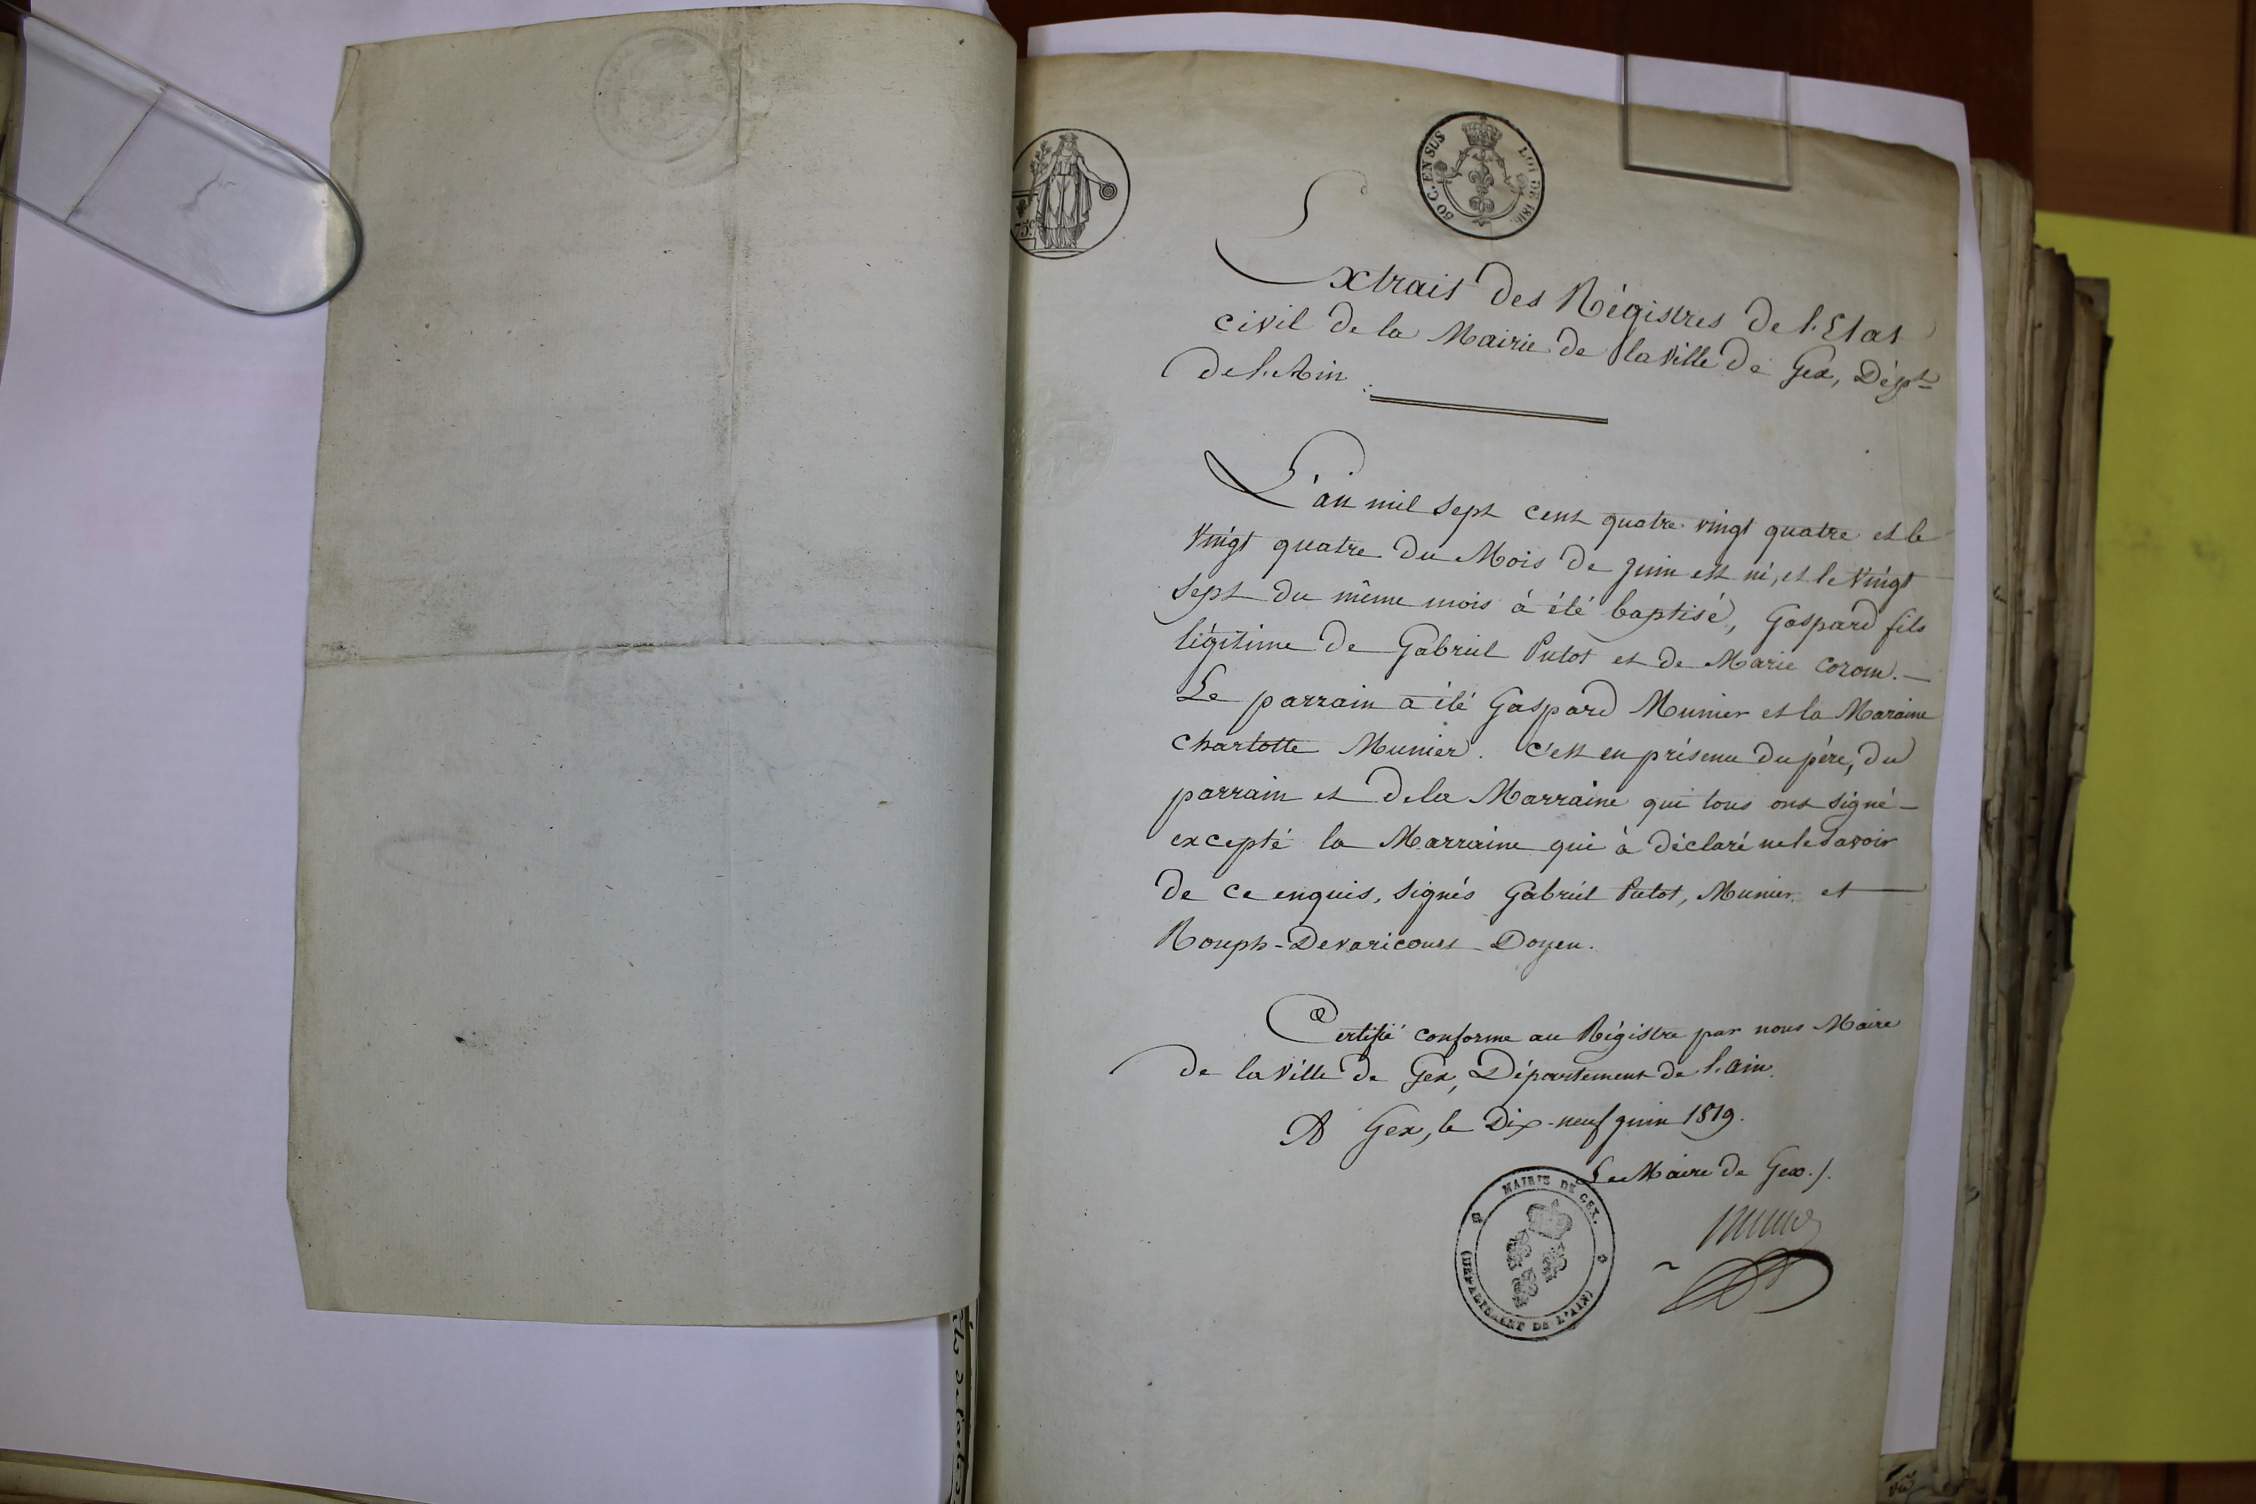 50 C. EN SUS LOI DE 1816.
75 c
Extrait des Régistres de l'Etat
civil de la Mairie de la Ville de Gex, Dépt
de l'Ain :
L'an mil sept cent quatre vingt quatre et le
vingt quatre du Mois de juin est né, et le vingt
sept du même mois à été baptisé, Gaspard fils
légitime de Gabriel Putot et de Marie
Le parrain a été Gaspard Munier et la Maraine
charlotte Munier. C'est en présence du père, du
parrain et de la Marraine qui tous ont signé
excepté la Marraine qui à déclaré ne le savoir
de ce enquis, signés Gabriel Putot, Munier et
Rouph-Devaricourt Doyen.
Certifié conforme au Régistre par nous Maire
de la Ville de Gex, Département de l'ain.
A Gex, le Dix-neuf juin 1819.
Le Maire de Gex./.
MAIRIE DE GEX.
(DÉPARTEMENT DE L'AIN)